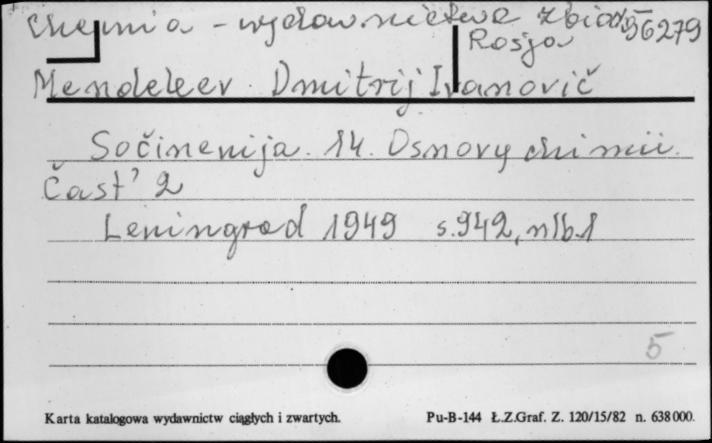 chemia - wydawnictwa zbior. 56279
Rosja
Mendeleev Dmitrij Ivanovič
Sočinenija. 14. Osnovy chimii.
Čast' 2
Leningrad 1949 s. 942, nlb. 1
5
Karta katalogowa wydawnictw ciągłych i zwartych. Pu-B-144 Ł.Z.Graf. Z. 120/15/82 n. 638 000.